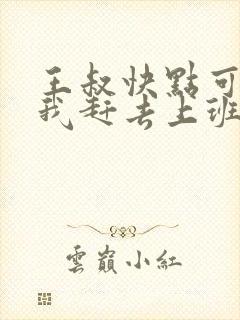 王叔快點可
我赶去上班
雲巔小紅